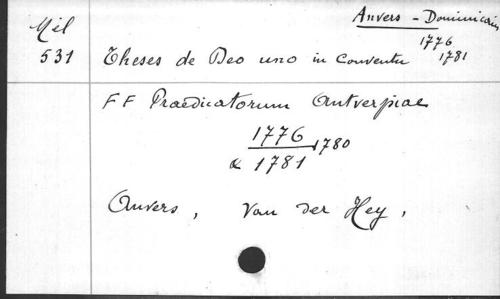 Mil
531
Anvers - Dominicains
1776
1781
Theses de Deo uno in Conventu
FF Praedicatorum Antverpiae
1776 1780
& 1781
Anvers, Van der Hey,